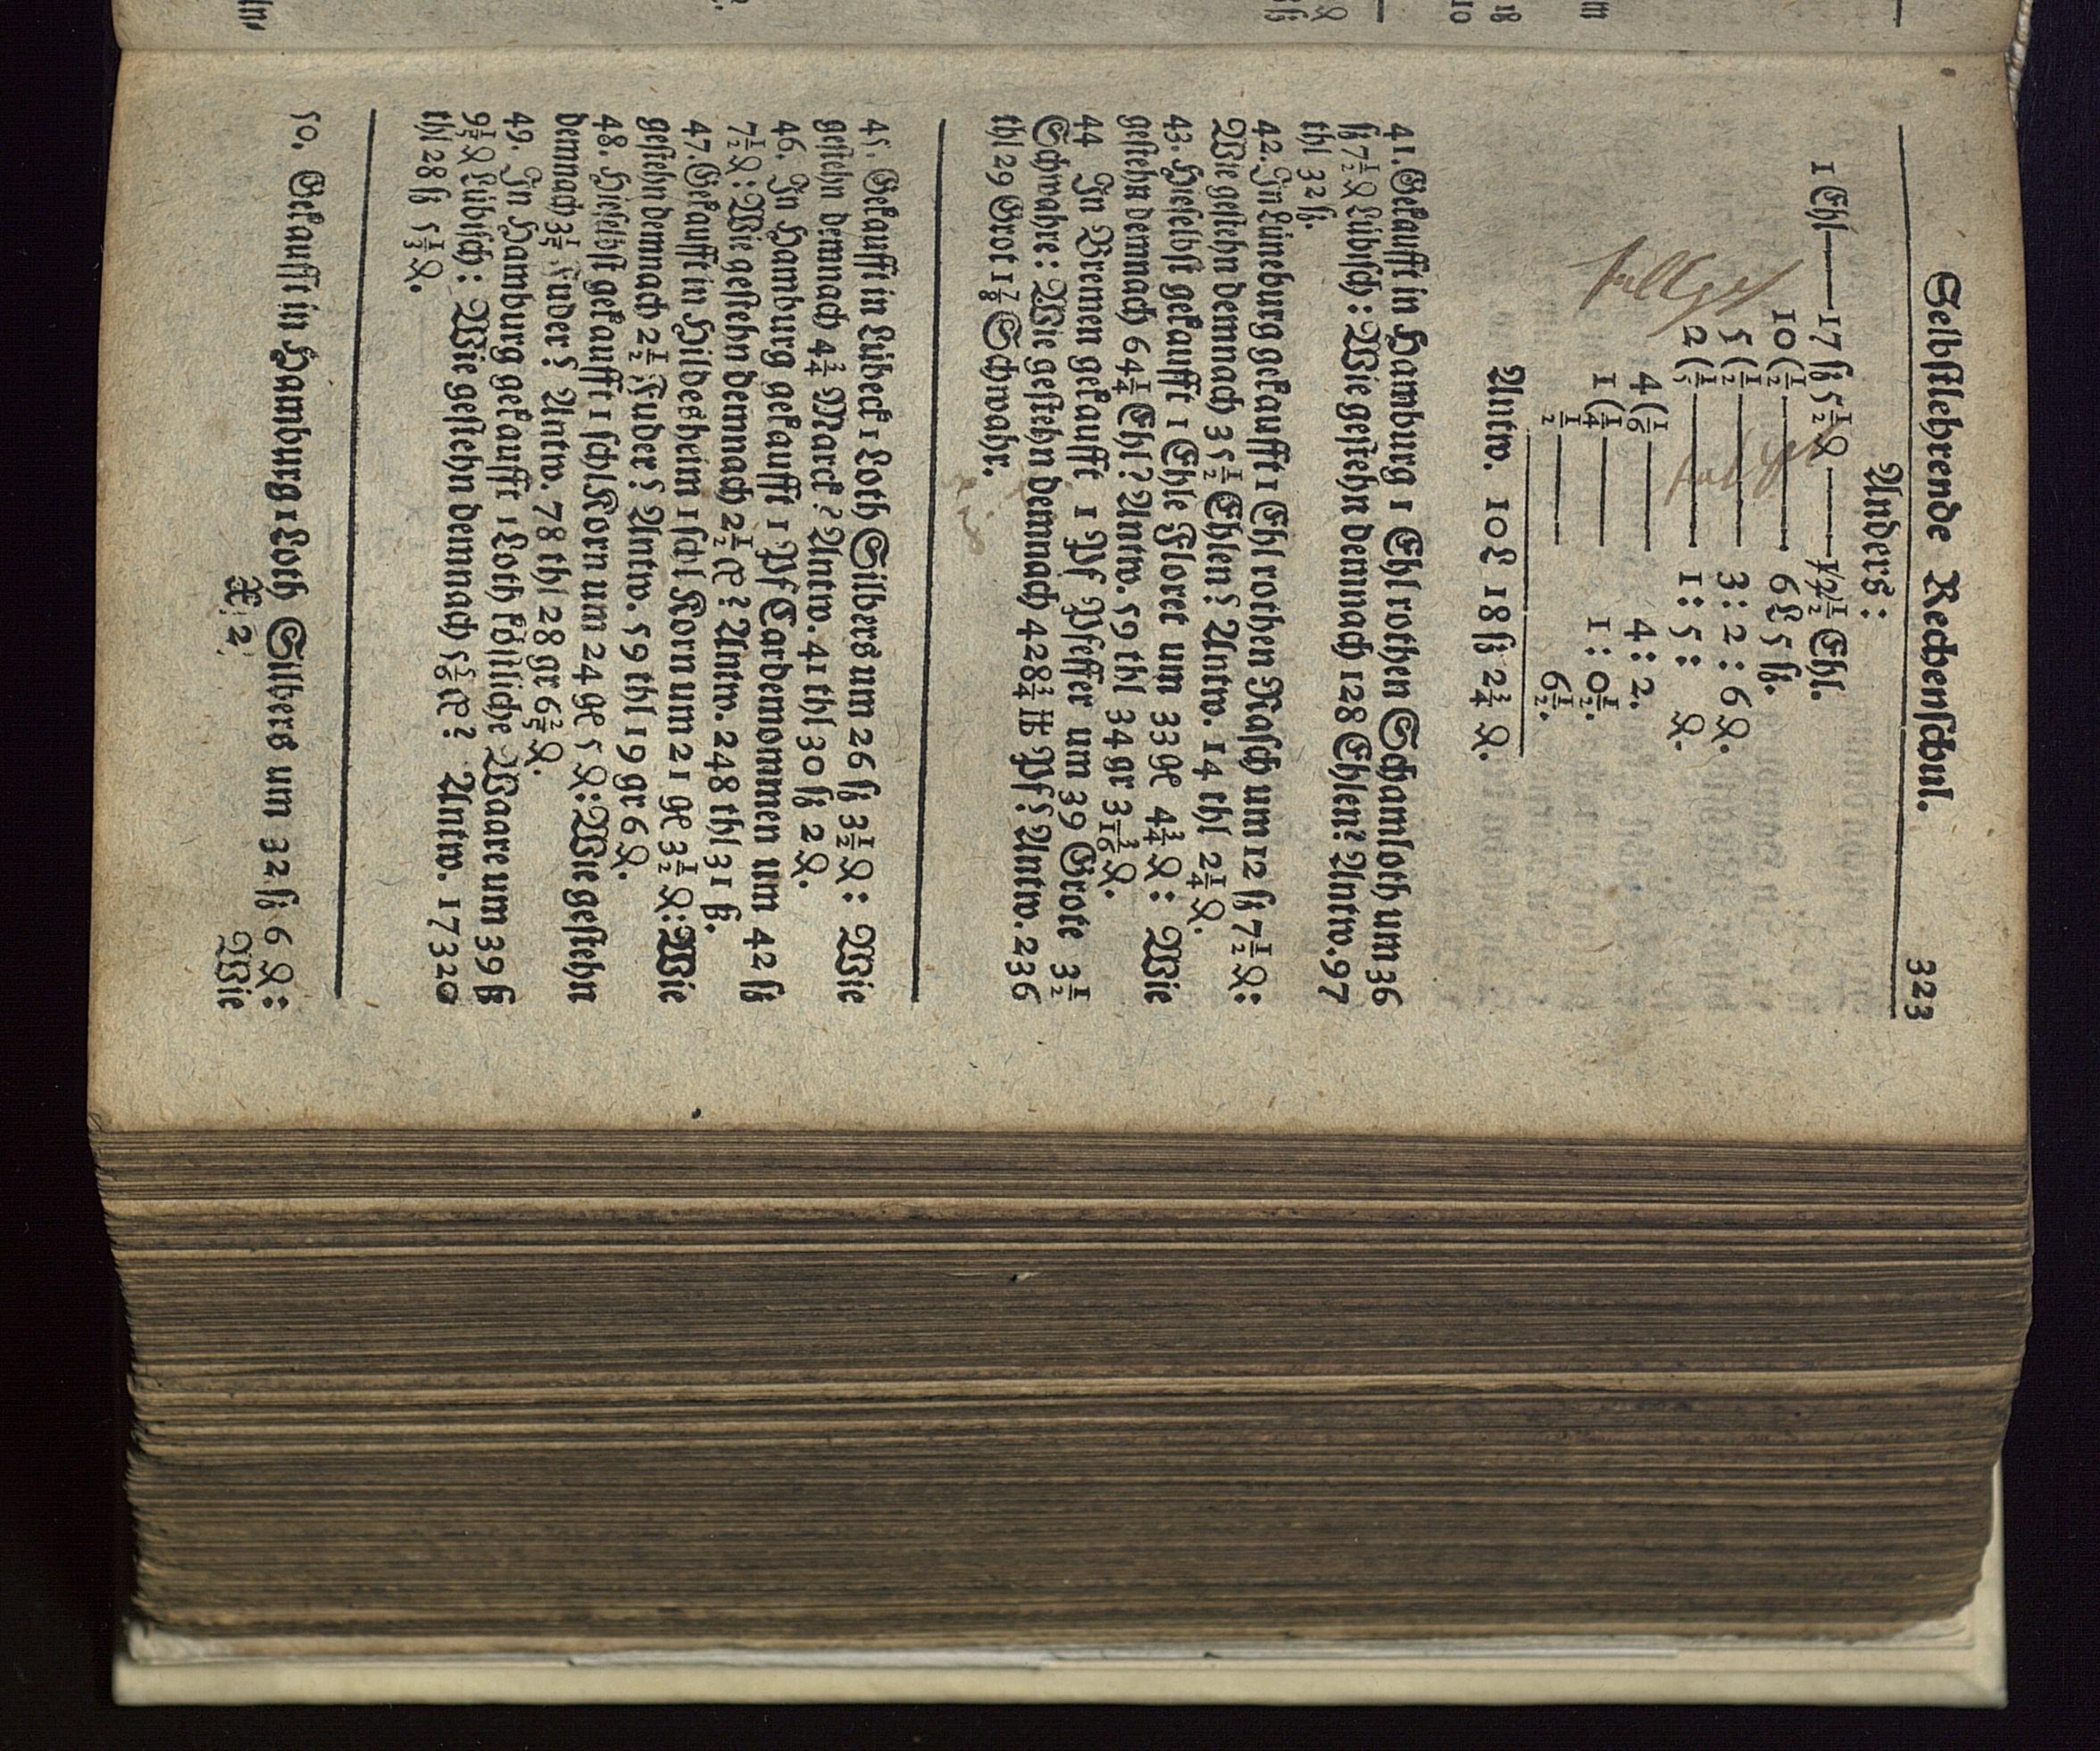 Selbstlehrende Rechenschul. 323
Anders:
1 Ehl——17 ß 5 1/2 ₰ ——12 1/2 Ehl.
10 (1/2 —— 6 ₤ 5 ß.
5 (1/2 —— 3: 2: 6 ₰.
2 (1/5 —— 1: 5: ₰.
4 (1/6 —— 4: 2.
1 (1/4 —— 1: 0 1/2.
1/2 —— 6 1/2.
Antw. 10 ₤ 18 ß 2 3/4 ₰.
41. Gekaufft in Hamburg 1 Ehl rothen Schamloth um 36
ß 7 1/2 ₰ Lübisch: Wie gestehn demnach 128 Ehlen? Antw. 97
thl 32 ß.
42. In Lüneburg gekaufft 1 Ehl rothen Rasch um 12 ß 7 1/2 ₰:
Wie gestehn demnach 35 1/2 Ehlen? Antw. 14 thl 2 1/4 ₰.
43. Hieselbst gekaufft 1 Ehle Floret um 33 ge 4 3/4 ₰: Wie
gestehn demnach 64 1/4 Ehl? Antw. 59 thl 34 gr 3 3/16 ₰.
44 In Bremen gekaufft 1 Pf Pfeffer um 39 Grote 3 1/2
Schwahre: Wie gestehn demnach 428 3/4 ℔ Pf? Antw. 236
thl 29 Grot 1 7/8 Schwahr.
45. Gekaufft in Lübeck 1 Loth Silbers um 26 ß 3 1/2 ₰: Wie
gestehn demnach 4 3/4 Marck? Antw. 41 thl 30 ß 2 ₰.
46. In Hamburg gekaufft 1 Pf Cardemommen um 42 ß
7 1/2 ₰: Wie gestehn demnach 2 1/2 C? Antw. 248 thl 31 ß.
47. Gekaufft in Hildesheim 1 schl Korn um 21 ge 3 1/2 ₰: Wie
gestehn demnach 2 1/2 Fuder? Antw. 59 thl 19 gr 6 ₰.
48. Hieselbst gekaufft 1 schl Korn um 24 ge 5 ₰: Wie gestehn
demnach 3 1/5 Fuder? Antw. 78 thl 28 gr 6 2/5 ₰.
49. In Hamburg gekaufft 1 Loth köstliche Waare um 39 ß
9 1/5 ₰ Lübisch: Wie gestehn demnach 5 5/6 C? Antw. 17320
thl 28 ß 5 1/3 ₰.
50. Gekaufft in Hamburg 1 Loth Silbers um 32 ß 6 ₰:
X 2 Wie